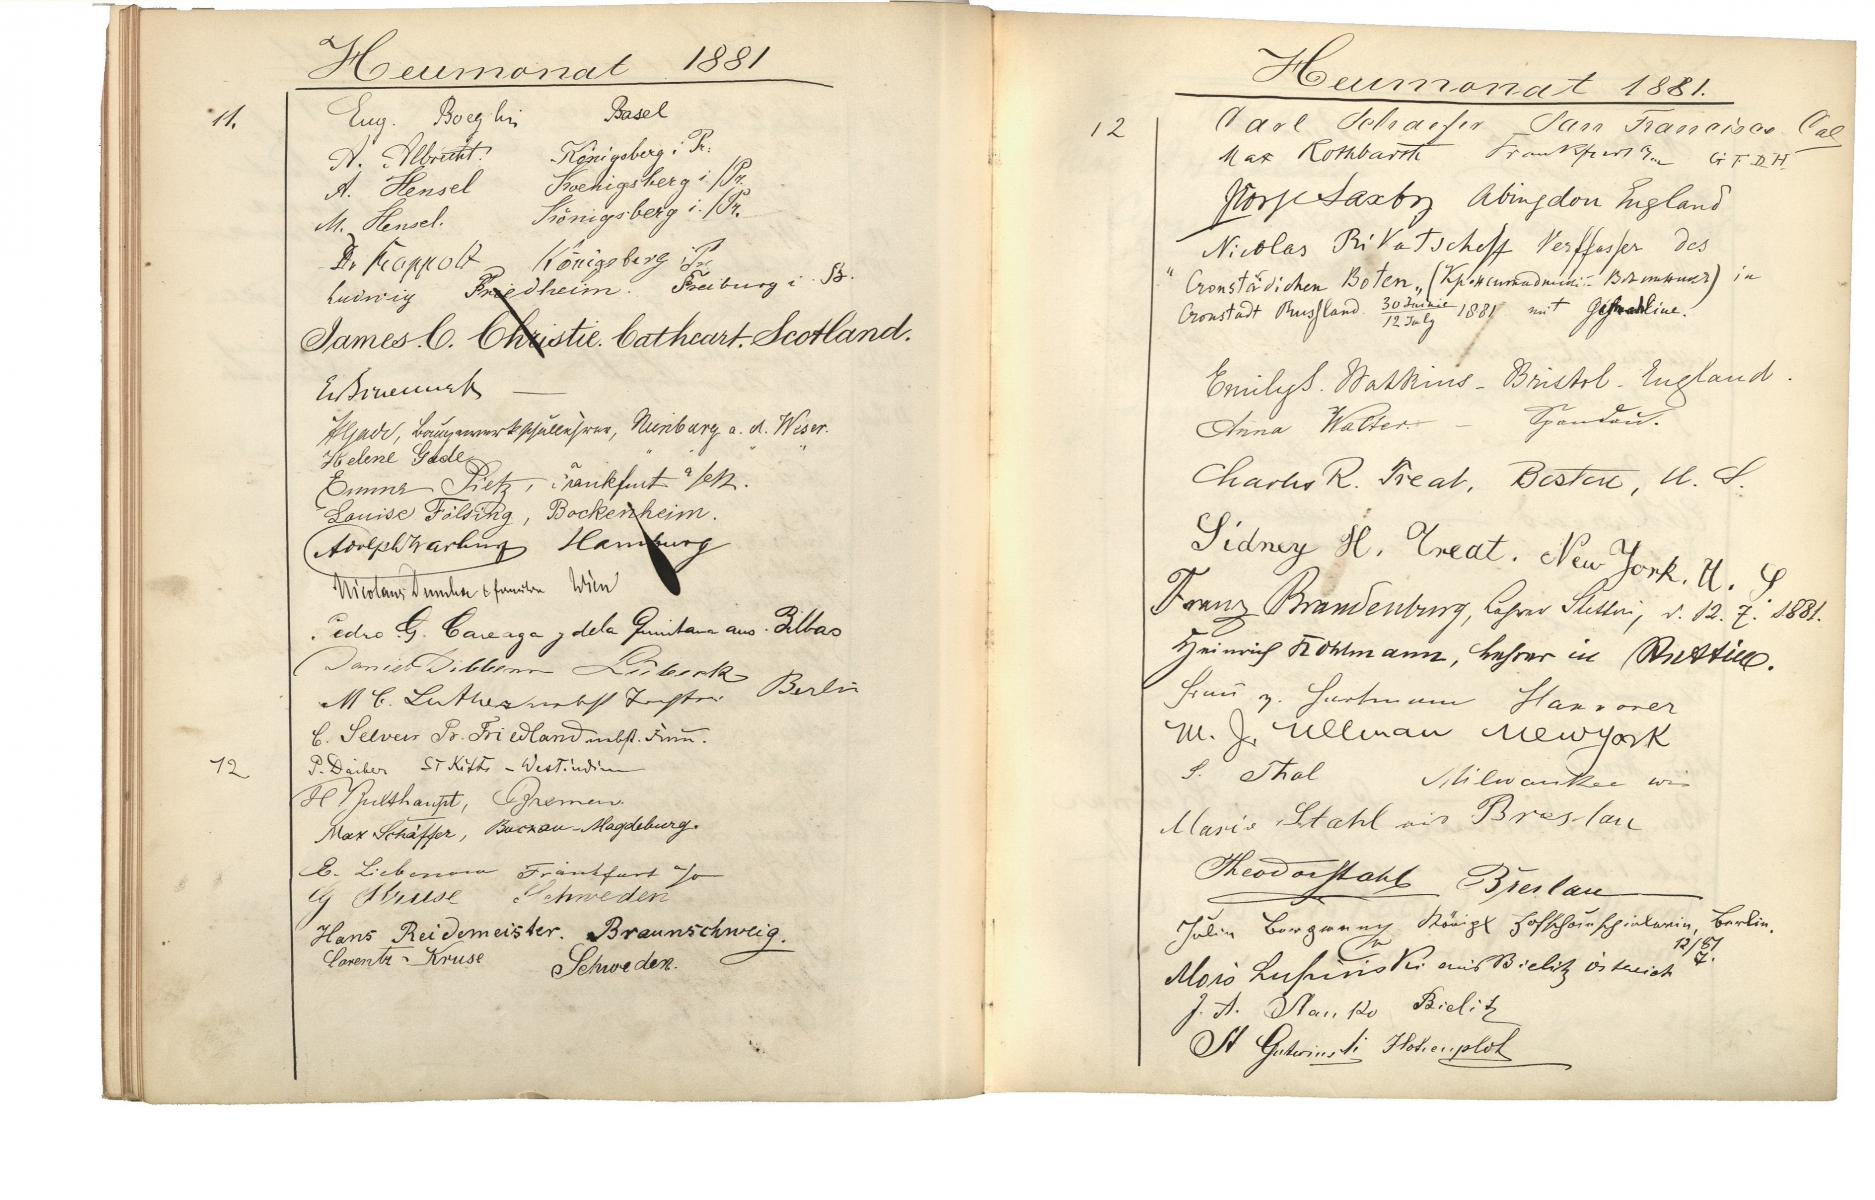 Heumonat 1881
11.
Eug. Boeglin Basel
A. Albrecht. Königsberg i. Pr.
A. Hensel Koenigsberg i./Pr.
M. Hensel. Königsberg i./Pr.
Dr Königsberg i. Pr
Ludwig Friedheim. Freiburg i. B.
James. C. Christie. Cathcart. Scotland.
Gade, Nienburg a. d. Weser.
Helene Gade " " "
Emma Pietz, Frankfurt a/M.
Louise Fölsing, Bockenheim.
Adolph Warburg Hamburg
Nicolaus Dumba & Familie Wien
Pedro G. Careaga y dela Quintana aus Bilbao
Daniel Lübeck
M C. Luther nebst Berlin
C. Selver Pr. Friedland nebst Frau.
12
P. Daiber St Kitts - Westindien
H Bulthaupt, Bremen
Max Schäffer, Buckau-Magdeburg.
E. Liebenow Frankfurt a/o
G Kruse Schweden
Hans Reidemeister. Braunschweig.
Lorentz Kruse Schweden.
Heumonat 1881.
12
Carl Schaefer San Francisco Cal
Max Rothbarth Frankfurt a/m
Saxby Abingdon England
Nicolas Rikatscheff Verffasser des
"Cronstädichen Boten" ( ) in
Cronstadt Russland 30 Junie / 12 July 1881 mit
Emily S. Watkins - Bristol - England.
Anna Walter. - Spandau.
Charles R. Treat, Boston, U. S.
Sidney H. Treat. New York. U. S
Franz Brandenburg, Lehrer Stettin, d. 12. 7. 1881.
Heinrich Kohlmann, Lehrer in Stettin.
Frau v. Hartmann Hannover
M. J. Ullman New York
S. Thal Milwaukee Wis
Marie Stahl aus Breslau
Theodor Stahl Breslau
Königl Hofschauspielerin, Berlin.
12/7. 81
aus Bielitz
J. A. Bielitz
St Gutwinski Hotzenplotz